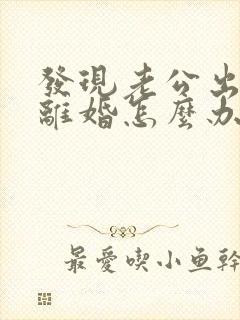 發現老公出
離婚怎麼办
最愛喫小鱼幹